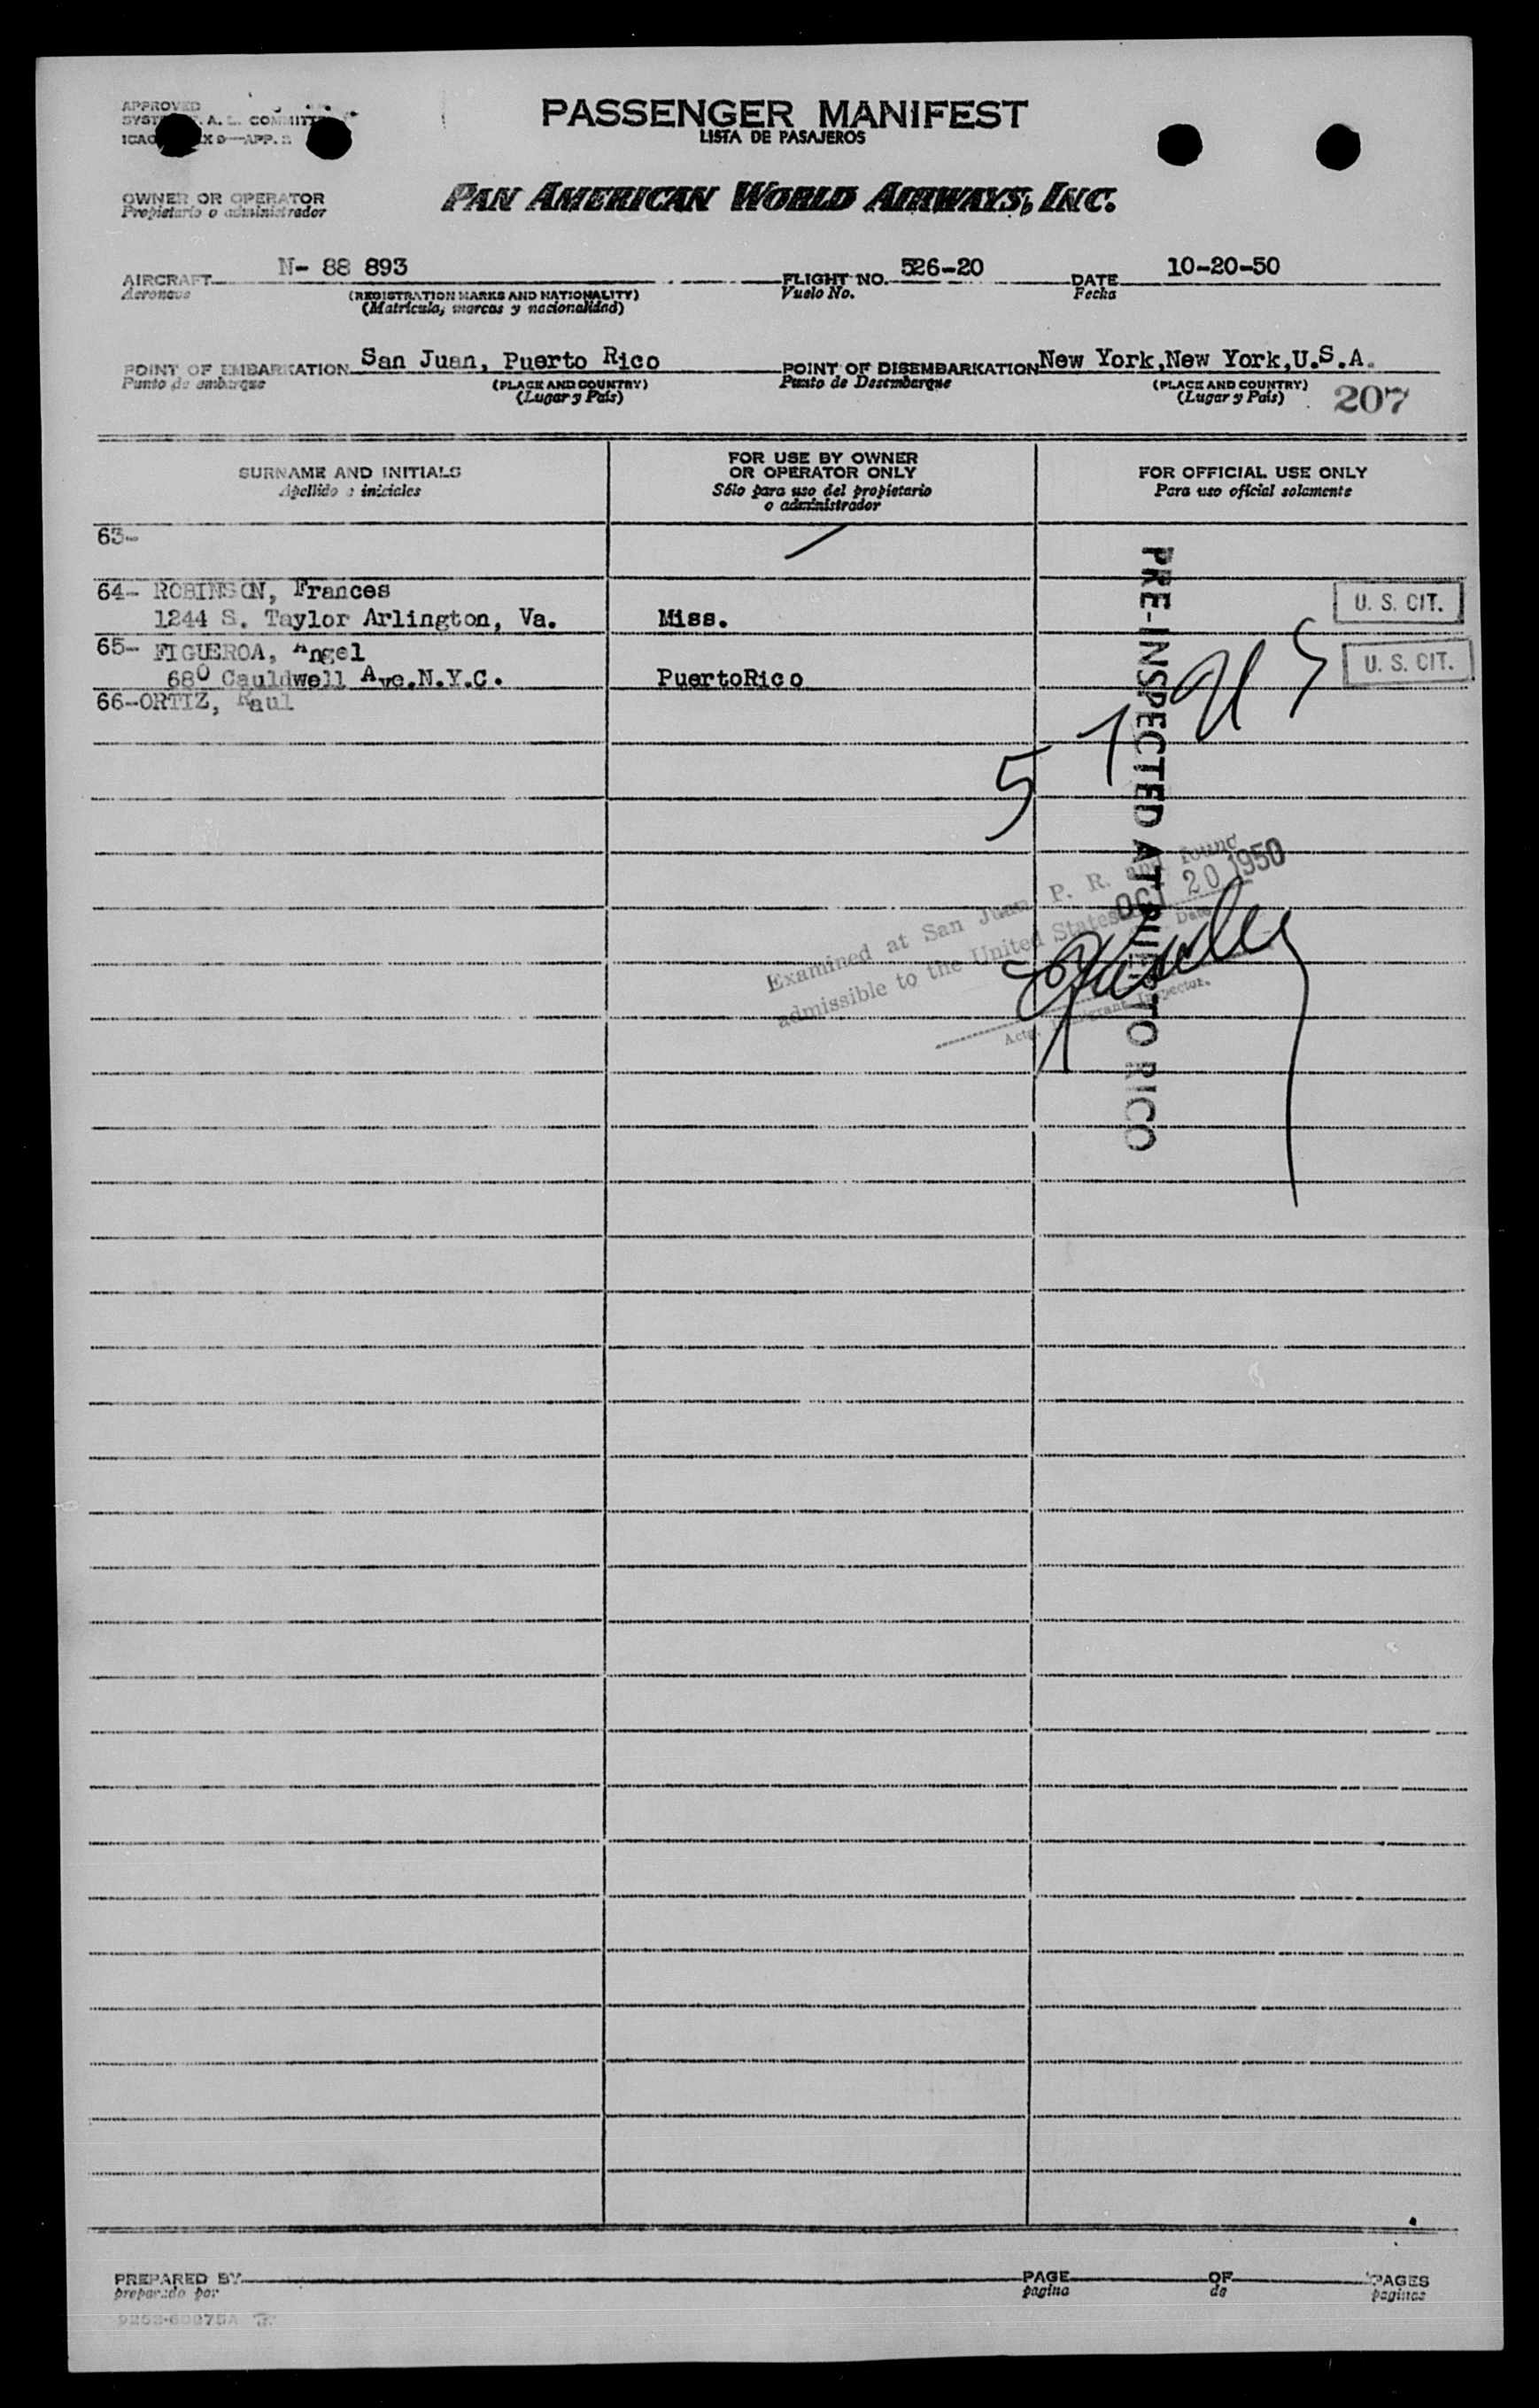 APPROVED
PASSENGER MANIFEST
LISTA DE PASAJEROS
OWNER OR OPERATOR
Propietario o administrador
PAN AMERICAN WORLD AIRWAYS, INC.
AIRCRAFT N- 88 893 FLIGHT NO. 526-20 DATE 10-20-50
Aeronave (REGISTRATION MARKS AND NATIONALITY) Vuelo No. Fecha
(Matrícula, marcas y nacionalidad)
POINT OF EMBARKATION San Juan, Puerto Rico POINT OF DISEMBARKATION New York,New York,U.S.A.
Punto de embarque (PLACE AND COUNTRY) Punto de Desembarque (PLACE AND COUNTRY)
(Lugar y País) (Lugar y País) 207
SURNAME AND INITIALS
Apellido e iniciales
FOR USE BY OWNER
OR OPERATOR ONLY
Sólo para uso del propietario
o administrador
FOR OFFICIAL USE ONLY
Para uso oficial solamente
63-
64- ROBINSON, Frances
1244 S. Taylor Arlington, Va. Miss. U. S. CIT.
65- FIGUEROA, Angel
680 Cauldwell Ave.N.Y.C. PuertoRico U. S. CIT.
66-ORTIZ, Raul
PRE-INSPECTED AT PUERTO RICO
Examined at San Juan P. R. and found
admissible to the United States
OCT 20 1950
Date
Actg. Immigrant Inspector.
PREPARED BY PAGE OF PAGES
preparado por pagina de paginas